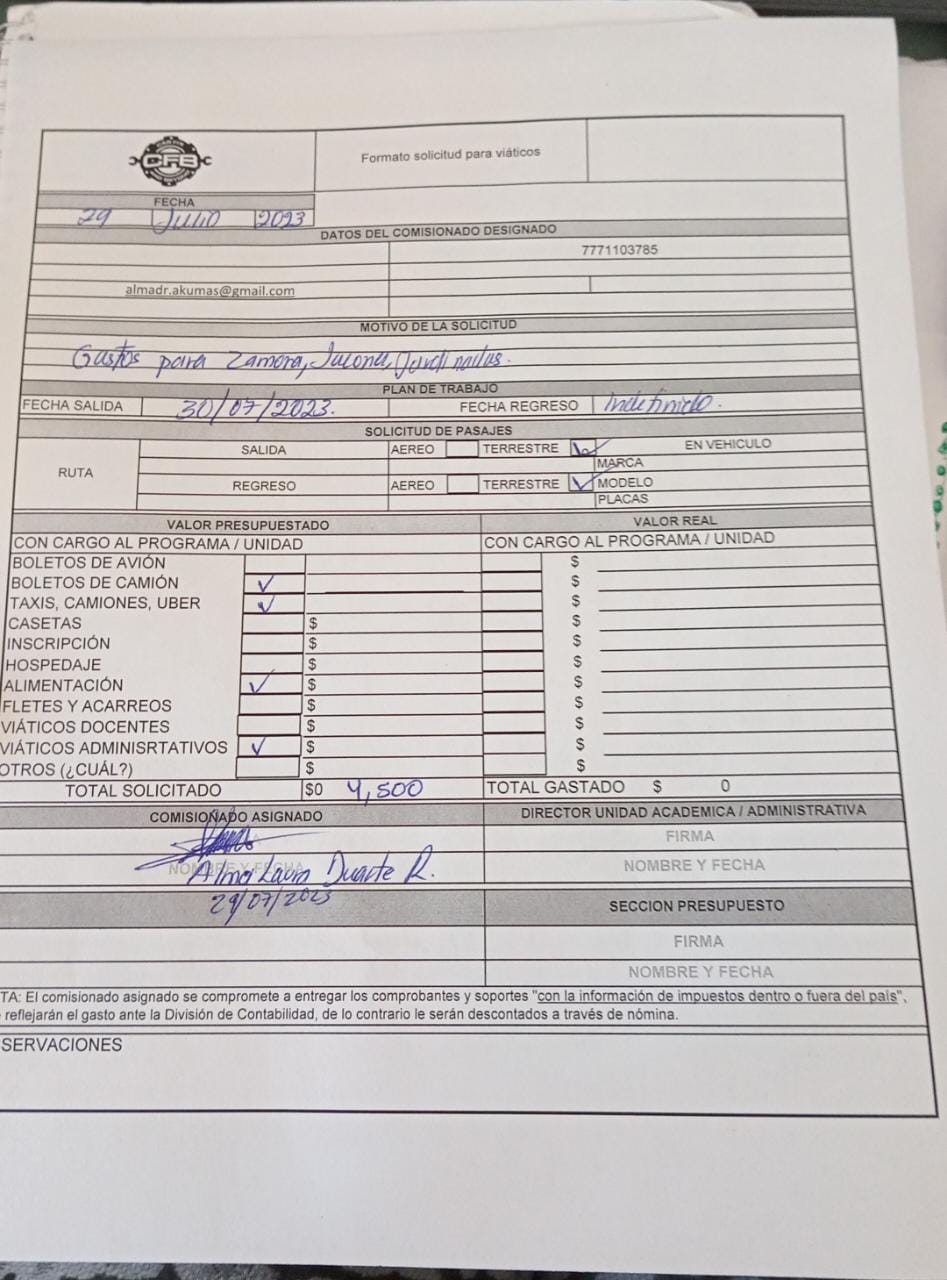 CFB
Formato solicitud para viáticos
FECHA
29 Julio 2023
DATOS DEL COMISIONADO DESIGNADO
7771103785
almadr.akumas@gmail.com
MOTIVO DE LA SOLICITUD
Gastos para Zamora, Jacona,
PLAN DE TRABAJO
FECHA SALIDA 30/07/2023. FECHA REGRESO Indefinido.
SOLICITUD DE PASAJES
SALIDA AEREO TERRESTRE EN VEHICULO
MARCA
RUTA
REGRESO AEREO TERRESTRE MODELO
PLACAS
VALOR PRESUPUESTADO VALOR REAL
CON CARGO AL PROGRAMA / UNIDAD CON CARGO AL PROGRAMA / UNIDAD
BOLETOS DE AVIÓN $
BOLETOS DE CAMIÓN ✓ $
TAXIS, CAMIONES, UBER ✓ $
CASETAS $ $
INSCRIPCIÓN $ $
HOSPEDAJE $ $
ALIMENTACIÓN ✓ $ $
FLETES Y ACARREOS $ $
VIÁTICOS DOCENTES $ $
VIÁTICOS ADMINISRTATIVOS ✓ $ $
OTROS (¿CUÁL?) $ $
TOTAL SOLICITADO $0 4,500 TOTAL GASTADO $ 0
COMISIONADO ASIGNADO DIRECTOR UNIDAD ACADEMICA / ADMINISTRATIVA
FIRMA
NOMBRE Y FECHA NOMBRE Y FECHA
Alma Laura Duarte R.
29/07/2023
SECCION PRESUPUESTO
FIRMA
NOMBRE Y FECHA
TA: El comisionado asignado se compromete a entregar los comprobantes y soportes "con la información de impuestos dentro o fuera del país",
reflejarán el gasto ante la División de Contabilidad, de lo contrario le serán descontados a través de nómina.
SERVACIONES